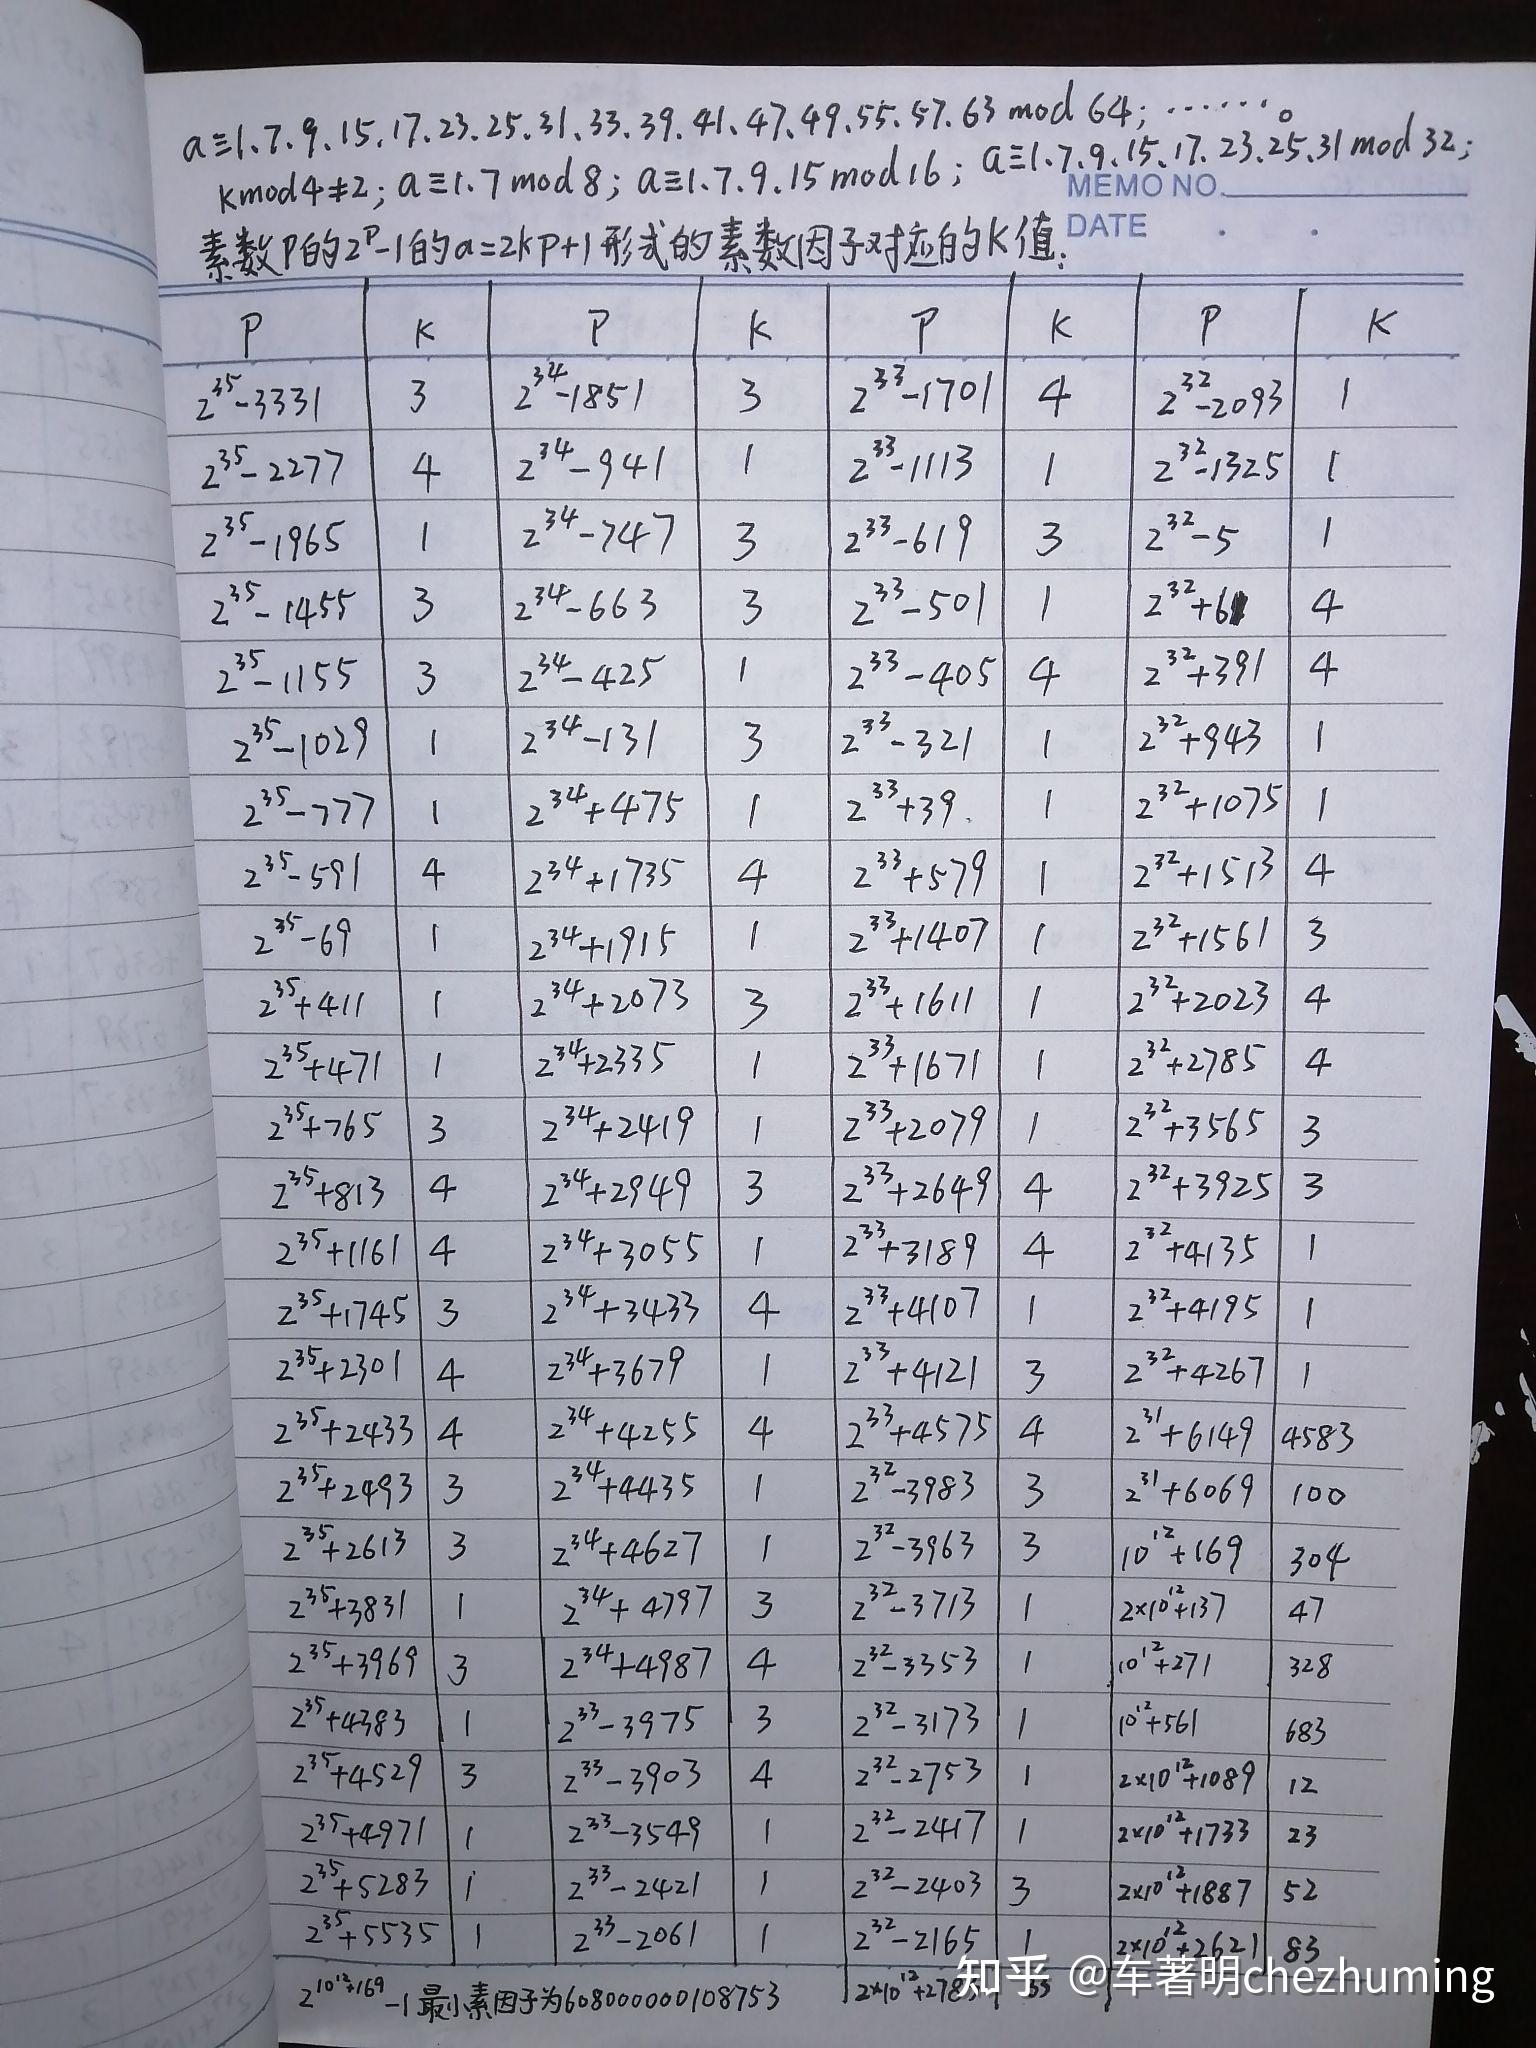 a≡1、7、9、15、17、23、25、31、33、39、41、47、49、55、57、63 mod 64; ……。
kmod4≠2; a≡1、7 mod 8; a≡1、7、9、15 mod 16; a≡1、7、9、15、17、23、25、31 mod 32;
MEMO NO.
DATE . .
素数P的2^P-1的a=2kp+1形式的素数因子对应的K值:
P K P K P K P K
2^35-3331 3 2^34-1851 3 2^33-1701 4 2^32-2093 1
2^35-2277 4 2^34-941 1 2^33-1113 1 2^32-1325 1
2^35-1965 1 2^34-747 3 2^33-619 3 2^32-5 1
2^35-1455 3 2^34-663 3 2^33-501 1 2^32+61 4
2^35-1155 3 2^34-425 1 2^33-405 4 2^32+391 4
2^35-1029 1 2^34-131 3 2^33-321 1 2^32+943 1
2^35-777 1 2^34+475 1 2^33+39 1 2^32+1075 1
2^35-591 4 2^34+1735 4 2^33+579 1 2^32+1513 4
2^35-69 1 2^34+1915 1 2^33+1407 1 2^32+1561 3
2^35+411 1 2^34+2073 3 2^33+1611 1 2^32+2023 4
2^35+471 1 2^34+2335 1 2^33+1671 1 2^32+2785 4
2^35+765 3 2^34+2419 1 2^33+2079 1 2^32+3565 3
2^35+813 4 2^34+2949 3 2^33+2649 4 2^32+3925 3
2^35+1161 4 2^34+3055 1 2^33+3189 4 2^32+4135 1
2^35+1745 3 2^34+3433 4 2^33+4107 1 2^32+4195 1
2^35+2301 4 2^34+3679 1 2^33+4121 3 2^32+4267 1
2^35+2433 4 2^34+4255 4 2^33+4575 4 2^31+6149 4583
2^35+2493 3 2^34+4435 1 2^32-3983 3 2^31+6069 100
2^35+2613 3 2^34+4627 1 2^32-3963 3 10^12+169 304
2^35+3831 1 2^34+4797 3 2^32-3713 1 2×10^12+137 47
2^35+3969 3 2^34+4987 4 2^32-3353 1 10^12+271 328
2^35+4383 1 2^33-3975 3 2^32-3173 1 10^12+561 683
2^35+4529 3 2^33-3903 4 2^32-2753 1 2×10^12+1089 12
2^35+4971 1 2^33-3549 1 2^32-2417 1 2×10^12+1733 23
2^35+5283 1 2^33-2421 1 2^32-2403 3 2×10^12+1887 52
2^35+5535 1 2^33-2061 1 2^32-2165 1 2×10^12+2621 83
2^10^12+169-1最小素因子为608000000108753
知乎 @车著明chezhuming